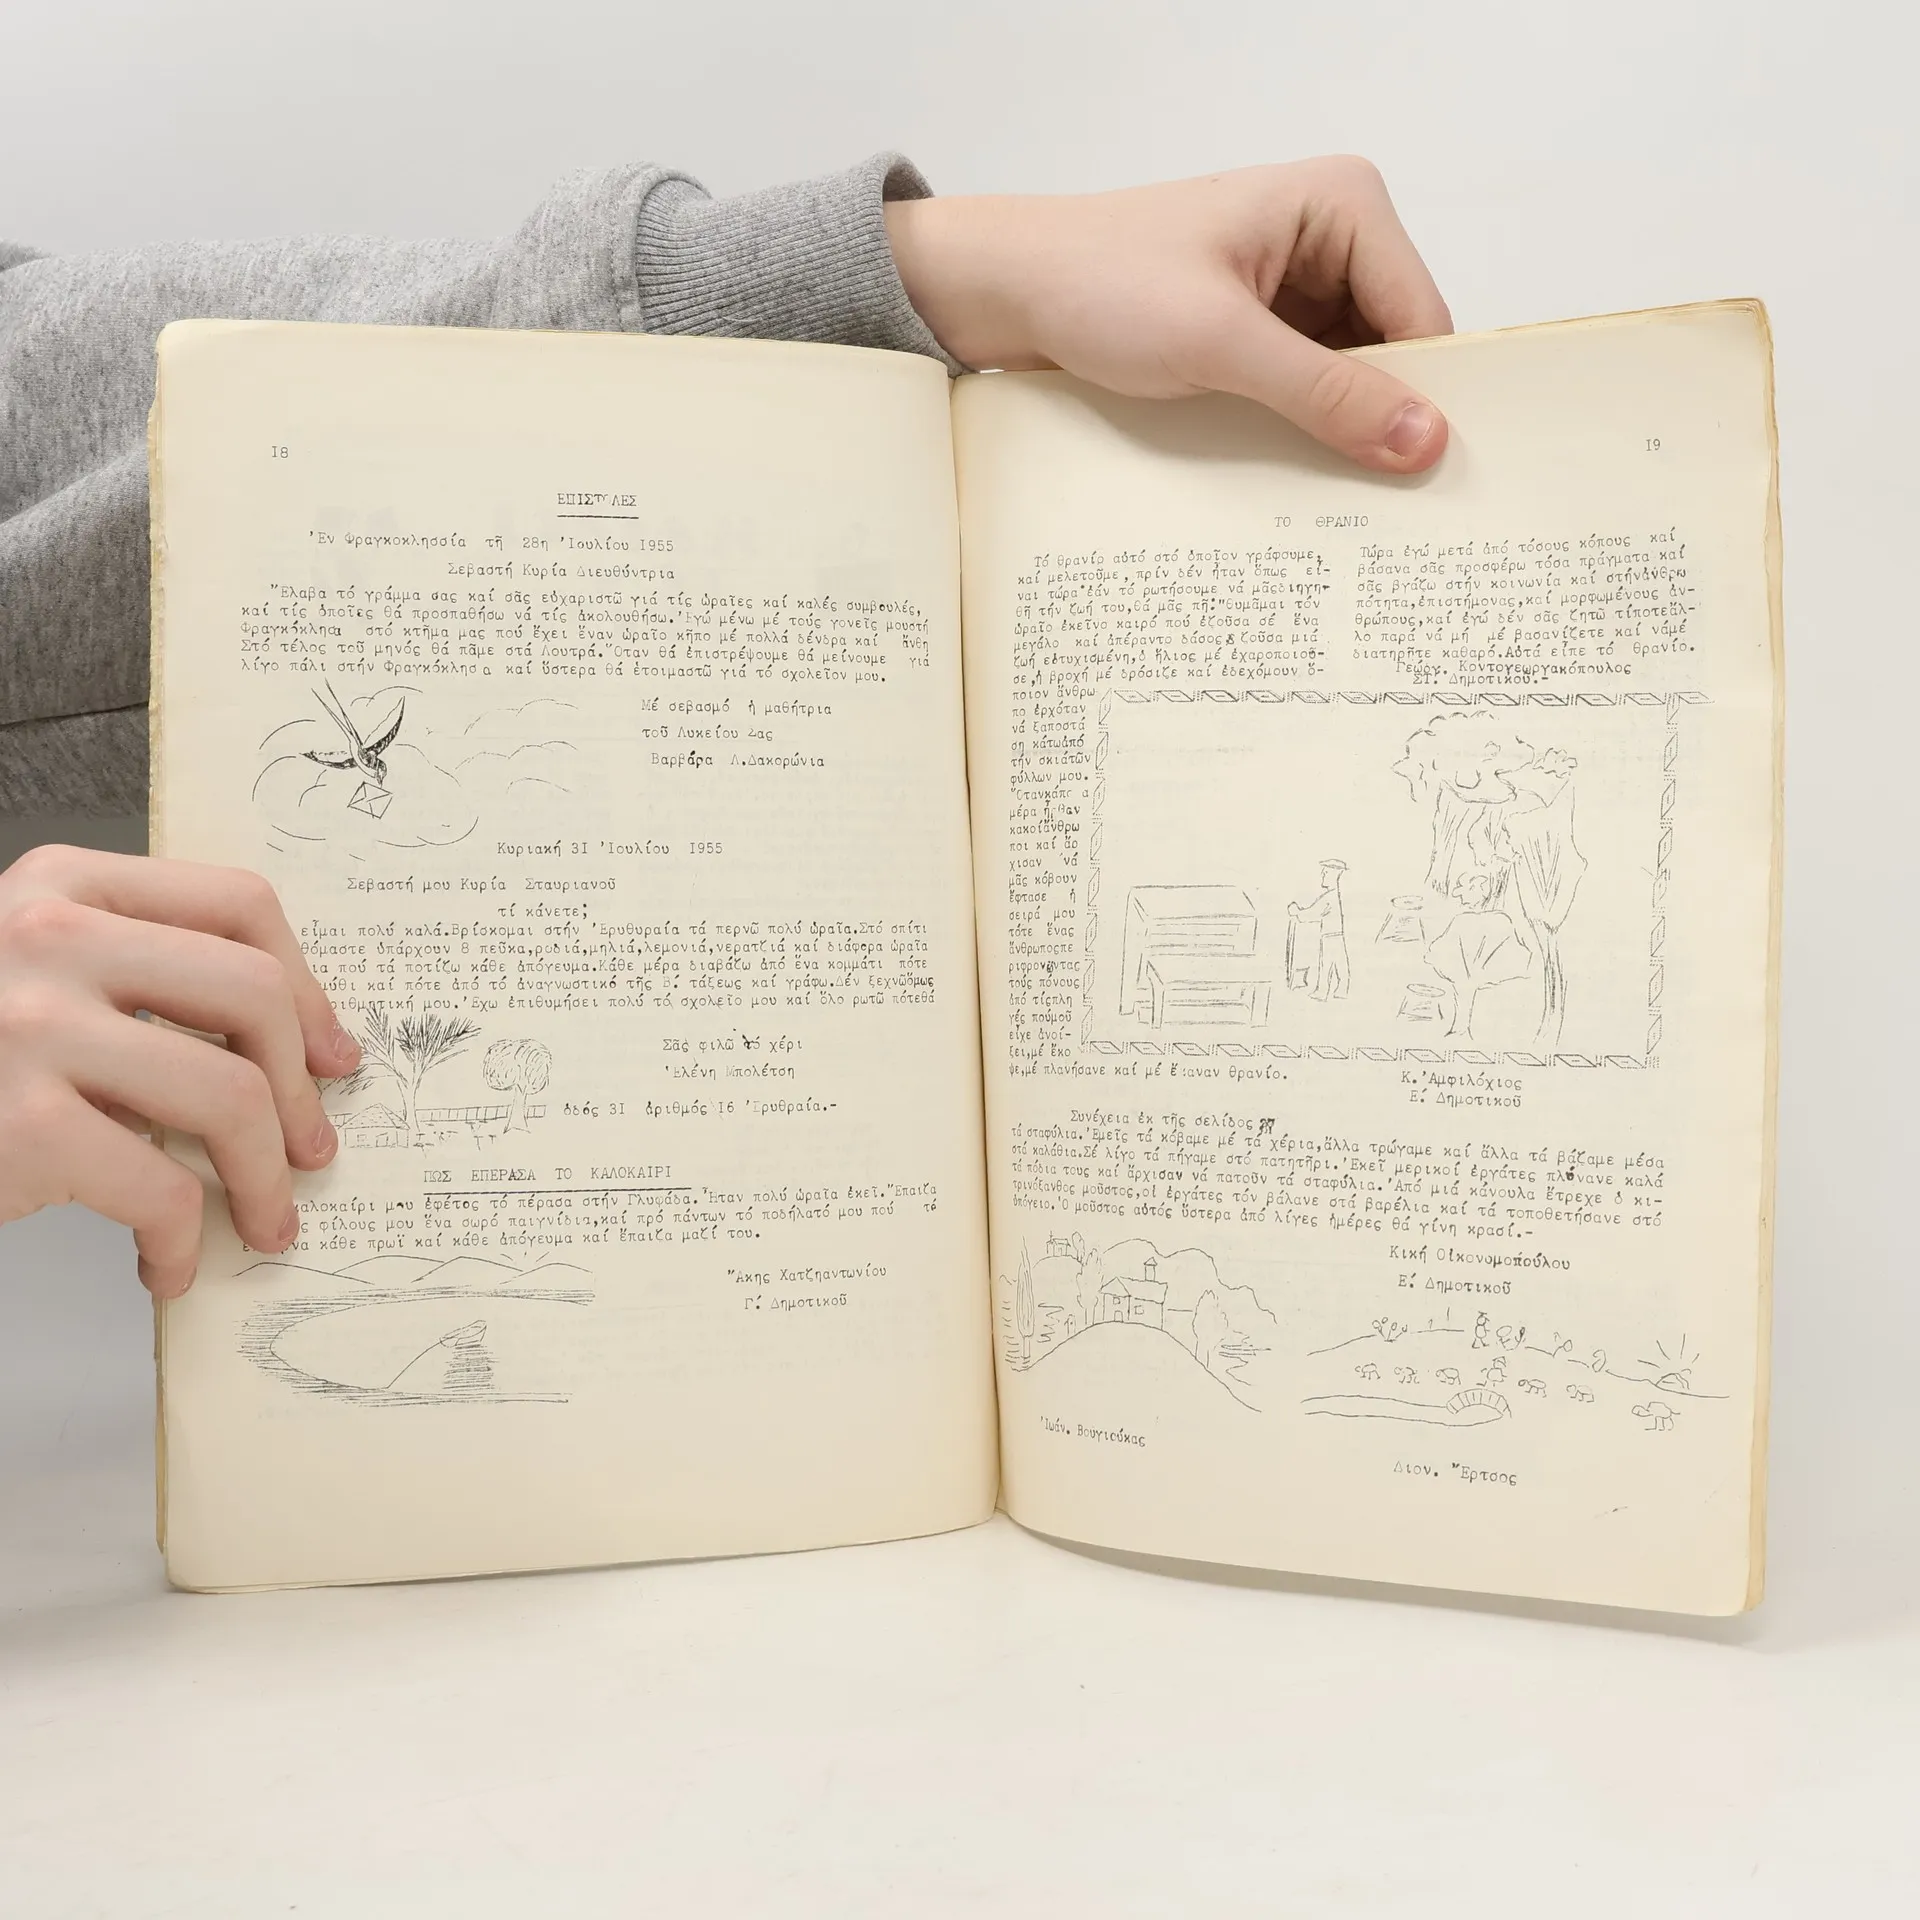 I8
ΕΠΙΣΤΟΛΕΣ
'Εν Φραγκοκλησσία τῇ 28η 'Ιουλίου I955
Σεβαστή Κυρία Διευθύντρια
"Ελαβα τό γράμμα σας καί σᾶς εὐχαριστῶ γιά τίς ὡραῖες καί καλές συμβουλές,
καί τίς ὁποῖες θά προσπαθήσω νά τίς ἀκολουθήσω.'Εγώ μένω μέ τούς γονεῖς μουστή
Φραγκόκλησα στό κτῆμα μας πού ἔχει ἕναν ὡραῖο κῆπο μέ πολλά δένδρα καί ἄνθη
Στό τέλος τοῦ μηνός θά πᾶμε στά Λουτρά."Οταν θά ἐπιστρέψουμε θά μείνουμε γιά
λίγο πάλι στήν Φραγκόκλησα καί ὕστερα θά ἑτοιμαστῶ γιά τό σχολεῖον μου.
Μέ σεβασμό ἡ μαθήτρια
τοῦ Λυκείου Σας
Βαρβάρα Λ.Δακορώνια
Κυριακή 3I 'Ιουλίου I955
Σεβαστή μου Κυρία Σταυριανοῦ
τί κάνετε;
εἶμαι πολύ καλά.Βρίσκομαι στήν 'Ερυθυραία τά περνῶ πολύ ὡραῖα.Στό σπίτι
θόμαστε ὑπάρχουν 8 πεῦκα,ροδιά,μηλιά,λεμονιά,νερατζιά καί διάφορα ὡραῖα
ια πού τά ποτίζω κάθε ἀπόγευμα.Κάθε μέρα διαβάζω ἀπό ἕνα κομμάτι πότε
μύθι καί πότε ἀπό τό ἀναγνωστικό τῆς Β΄ τάξεως καί γράφω.Δέν ξεχνῶὅμως
ριθμητική μου.'Εχω ἐπιθυμήσει πολύ τό σχολεῖο μου καί ὅλο ρωτῶ πότεθά
Σᾶς φιλῶ τό χέρι
'Ελένη Μπολέτση
ὁδός 3I ἀριθμός I6 'Ερυθραία.-
ΠΩΣ ΕΠΕΡΑΣΑ ΤΟ ΚΑΛΟΚΑΙΡΙ
καλοκαίρι μου ἐφέτος τό πέρασα στήν Γλυφάδα.Ἦταν πολύ ὡραῖα ἐκεῖ."Επαιζα
ς φίλους μου ἕνα σωρό παιγνίδια,καί πρό πάντων τό ποδήλατό μου πού τό
να κάθε πρωΐ καί κάθε ἀπόγευμα καί ἔπαιζα μαζί του.
"Ακης Χατζηαντωνίου
Γ΄ Δημοτικοῦ
I9
ΤΟ ΘΡΑΝΙΟ
Τό θρανίο αὐτό στό ὁποῖον γράφουμε,
καί μελετοῦμε,πρίν δέν ἦταν ὅπως εἶ-
ναι τώρα·ἐάν τό ρωτήσουμε νά μᾶςδιηγη-
θῇ τήν ζωή του,θά μᾶς πῇ:"Θυμᾶμαι τόν
ὡραῖο ἐκεῖνο καιρό πού ἐζοῦσα σέ ἕνα
μεγάλο καί ἀπέραντο δάσος,ἐζοῦσα μιά
ζωή εὐτυχισμένη,ὁ ἥλιος μέ ἐχαροποιοῦ-
σε,ἡ βροχή μέ δρόσιζε καί ἐδεχόμουν ὅ-
ποιον ἄνθρω
πο ἐρχόταν
νά ξαποστά
ση κάτωἀπό
τήν σκιάτῶν
φύλλων μου.
"Οτανκάπο α
μέρα ἦρθαν
κακοίἄνθρω
ποι καί ἄρ
χισαν νά
μᾶς κόβουν
ἔφτασε ἡ
σειρά μου
τότε ἕνας
ἄνθρωποςπε
ριφρονῶντας
τούς πόνους
ἀπό τίςπλη
γές πούμοῦ
εἶχε ἀνοί-
ξει,μέ ἔκο
ψε,μέ πλανήσανε καί μέ ἔκαναν θρανίο.
Τώρα ἐγώ μετά ἀπό τόσους κόπους καί
βάσανα σᾶς προσφέρω τόσα πράγματα καί
σᾶς βγάζω στήν κοινωνία καί στήνἀνθρω
πότητα,ἐπιστήμονας,καί μορφωμένους ἀν-
θρώπους,καί ἐγώ δέν σᾶς ζητῶ τίποτεἄλ-
λο παρά νά μή μέ βασανίζετε καί νάμέ
διατηρῆτε καθαρό.Αὐτά εἶπε τό θρανίο.
Γεώργ. Κοντογεωργακόπουλος
ΣΤ΄ Δημοτικοῦ.-
Κ.'Αμφιλόχιος
Ε΄ Δημοτικοῦ
Συνέχεια ἐκ τῆς σελίδος
τά σταφύλια.'Εμεῖς τά κόβαμε μέ τά χέρια,ἄλλα τρώγαμε καί ἄλλα τά βάζαμε μέσα
στά καλάθια.Σέ λίγο τά πήγαμε στό πατητῆρι.'Εκεῖ μερικοί ἐργάτες πλύνανε καλά
τά πόδια τους καί ἄρχισαν νά πατοῦν τά σταφύλια.'Από μιά κάνουλα ἔτρεχε ὁ κι-
τρινόξανθος μοῦστος,οἱ ἐργάτες τόν βάλανε στά βαρέλια καί τά τοποθετήσανε στό
ὑπόγειο.'Ο μοῦστος αὐτός ὕστερα ἀπό λίγες ἡμέρες θά γίνη κρασί.-
Κική Οἰκονομοπούλου
Ε΄ Δημοτικοῦ
'Ιωάν. Βουγιούκας
Διον. "Ερτσος